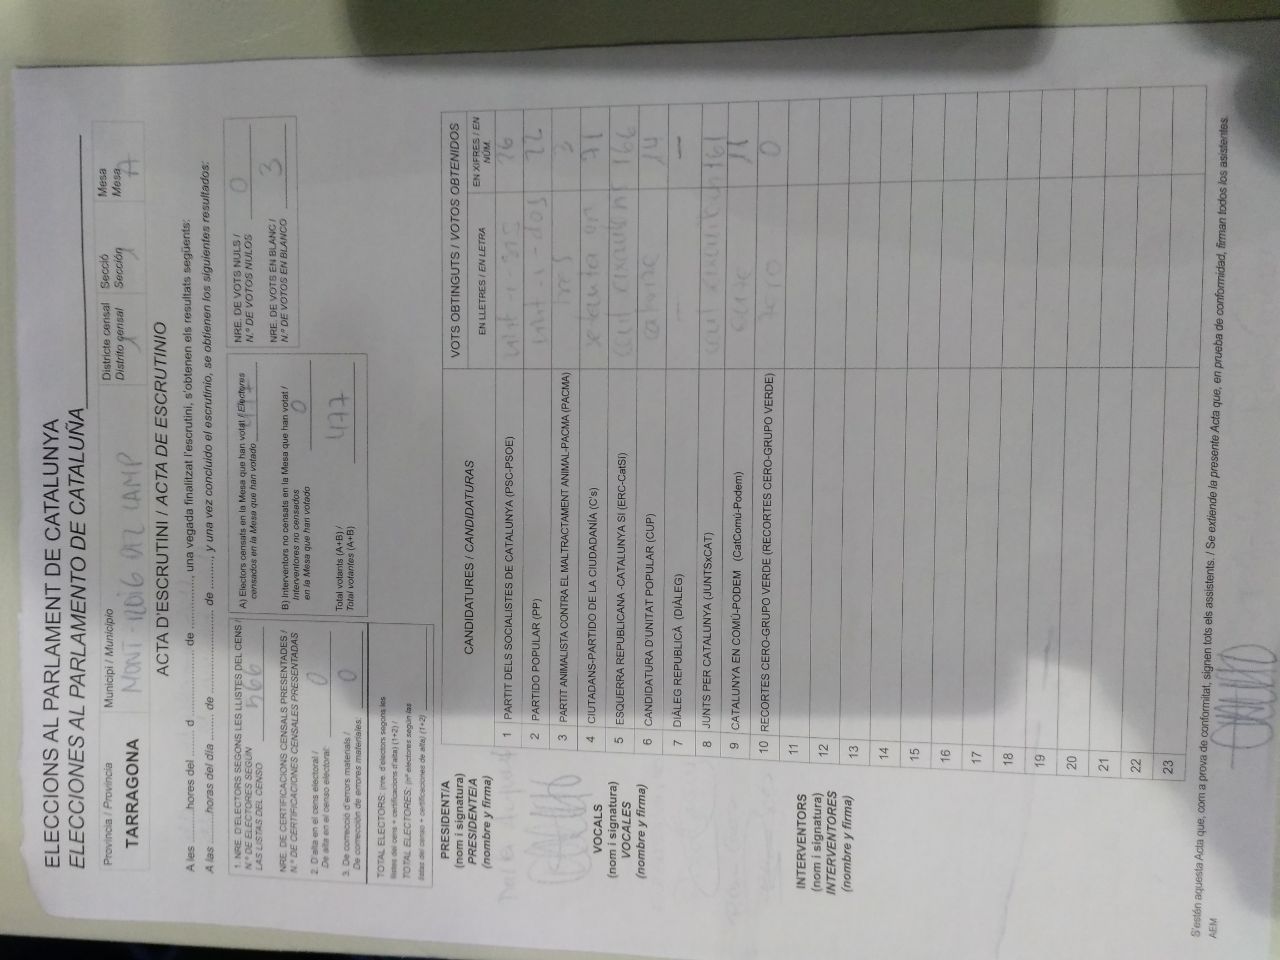 ELECCIONS AL PARLAMENT DE CATALUNYA
ELECCIONES AL PARLAMENTO DE CATALUÑA
Província / Provincia
TARRAGONA
Municipi / Municipio
MONT-ROIG DEL CAMP
Districte censal
Distrito censal
1
Secció
Sección
1
Mesa
Mesa
A
ACTA D'ESCRUTINI / ACTA DE ESCRUTINIO
A les ........hores del ........ d ................ de ............, una vegada finalitzat l'escrutini, s'obtenen els resultats següents:
A las ........horas del día ........ de ................ de ........, y una vez concluido el escrutinio, se obtienen los siguientes resultados:
1. NRE. D'ELECTORS SEGONS LES LLISTES DEL CENS /
N.º DE ELECTORES SEGÚN
LAS LISTAS DEL CENSO
566
NRE. DE CERTIFICACIONS CENSALS PRESENTADES /
N.º DE CERTIFICACIONES CENSALES PRESENTADAS
2. D'alta en el cens electoral /
De alta en el censo electoral:
0
3. De correcció d'errors materials /
De corrección de errores materiales:
0
TOTAL ELECTORS: (nre. d'electors segons les
llistes del cens + certificacions d'alta) (1+2) /
TOTAL ELECTORES: (nº electores según las
listas de censo + certificaciones de alta) (1+2)
A) Electors censats en la Mesa que han votat / Electores
censados en la Mesa que han votado
477
B) Interventors no censats en la Mesa que han votat /
Interventores no censados
en la Mesa que han votado
0
Total votants (A+B) /
Total votantes (A+B)
477
NRE. DE VOTS NULS /
N.º DE VOTOS NULOS
0
NRE. DE VOTS EN BLANC /
N.º DE VOTOS EN BLANCO
3
CANDIDATURES / CANDIDATURAS
VOTS OBTINGUTS / VOTOS OBTENIDOS
EN LLETRES / EN LETRA
EN XIFRES / EN NÚM.
1 PARTIT DELS SOCIALISTES DE CATALUNYA (PSC-PSOE) vint-i-sis 26
2 PARTIDO POPULAR (PP) vint-i-dos 22
3 PARTIT ANIMALISTA CONTRA EL MALTRACTAMENT ANIMAL-PACMA (PACMA) tres 3
4 CIUTADANS-PARTIDO DE LA CIUDADANÍA (C's) 71
5 ESQUERRA REPUBLICANA -CATALUNYA SÍ (ERC-CatSÍ) 166
6 CANDIDATURA D'UNITAT POPULAR (CUP) catorze 14
7 DIÀLEG REPUBLICÀ (DIÀLEG) — —
8 JUNTS PER CATALUNYA (JUNTSxCAT) 161
9 CATALUNYA EN COMÚ-PODEM (CatComú-Podem) onze 11
10 RECORTES CERO-GRUPO VERDE (RECORTES CERO-GRUPO VERDE) zero 0
11
12
13
14
15
16
17
18
19
20
21
22
23
PRESIDENT/A
(nom i signatura)
PRESIDENTE/A
(nombre y firma)
VOCALS
(nom i signatura)
VOCALES
(nombre y firma)
INTERVENTORS
(nom i signatura)
INTERVENTORES
(nombre y firma)
S'estén aquesta Acta que, com a prova de conformitat, signen tots els assistents. / Se extiende la presente Acta que, en prueba de conformidad, firman todos los asistentes.
AEM